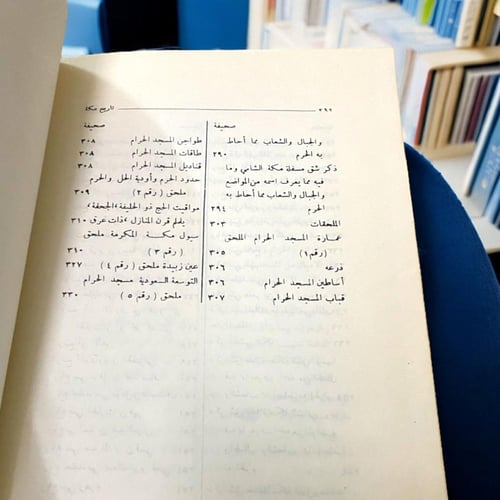 ٣٩٢
تاريخ مكة
صحيفة
والجبال والشعاب مما أحاط
به الحرم ٢٩٠
ذكر شق مسفلة مكة الشامي وما
فيه مما يعرف اسمه من المواضع
والجبال والشعاب مما أحاط به
الحرم ٢٩٤
الملحقات ٣٠٣
عمارة المسجد الحرام الملحق
(رقم ١) ٣٠٥
ذرعه ٣٠٦
أساطين المسجد الحرام ٣٠٦
قباب المسجد الحرام ٣٠٧
صحيفة
طواجن المسجد الحرام ٣٠٨
طاقات المسجد الحرام ٣٠٨
قناديل المسجد الحرام ٣٠٨
حدود الحرم وأودية الحل والحرم
ملحق ( رقم ٢ ) ٣٠٩
مواقيت الحج ذو الحليفة، الجحفة،
يلملم قرن المنازل، ذات عرق ٣١٠
سيول مكة المكرمة ملحق
( رقم ٣ ) ٣١٠
عين زبيدة ملحق ( رقم ٤ ) ٣٢٧
التوسعة السعودية مسجد الحرام
ملحق ( رقم ٥ ) ٣٣٠